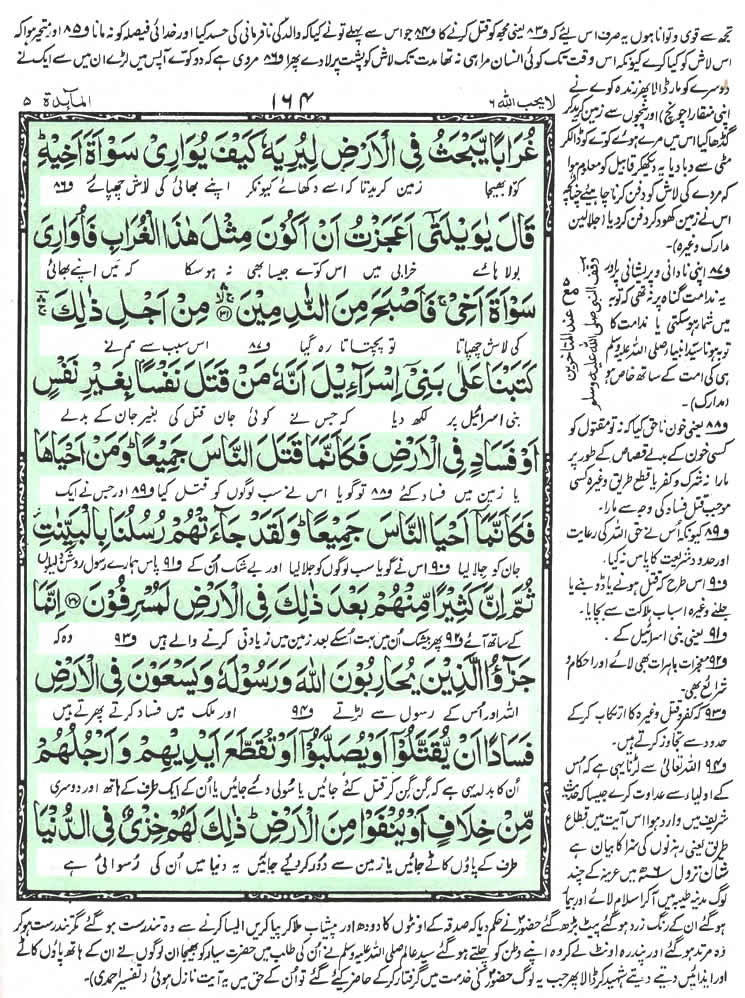 تجھ سے قوی و توانا ہوں یہ صرف اس لیئے کہ و۸۳ یعنی مجھ کو قتل کرنے کا و۸۴ جو اس سے پہلے تو نے کیا کہ والد کی نافرمانی کی حسد کیا اور خدائی فیصلہ کو نہ مانا و۸۵ اور متحیر ہوا کہ
اس لاش کو کیا کرے کیونکہ اس وقت تک کوئی انسان مرا ہی نہ تھا مدت تک لاش کو پشت پر لادے پھرا و۸۶ مروی ہے کہ دو کوّے آپس میں لڑے ان میں سے ایک نے
لا یحب اللہ ۶
۱۶۴
المآىدۃ ۵
غُرَابًا یَّبْحَثُ فِی الْاَرْضِ لِیُرِیَهٗ كَیْفَ یُوَارِیْ سَوْاَةَ اَخِیْهِؕ
کوّا بھیجا زمین کریدتا کہ اسے دکھائے کیونکر اپنے بھائی کی لاش چھپائے و۸۶
قَالَ یٰوَیْلَتٰۤى اَعَجَزْتُ اَنْ اَكُوْنَ مِثْلَ هٰذَا الْغُرَابِ فَاُوَارِیَ
بولا ہائے خرابی میں اس کوّے جیسا بھی نہ ہو سکا کہ میں اپنے بھائی
سَوْاَةَ اَخِیْۚ فَاَصْبَحَ مِنَ النّٰدِمِیْنَ ۙ﴿۳۱﴾ مِنْ اَجْلِ ذٰلِكَ ۚ
کی لاش چھپاتا تو پچتاتا رہ گیا و۸۷ اس سبب سے ہم نے
كَتَبْنَا عَلٰى بَنِیْۤ اِسْرَآءِیْلَ اَنَّهٗ مَنْ قَتَلَ نَفْسًۢا بِغَیْرِ نَفْسٍ
بنی اسرائیل پر لکھ دیا کہ جس نے کوئی جان قتل کی بغیر جان کے بدلے
اَوْ فَسَادٍ فِی الْاَرْضِ فَكَاَنَّمَا قَتَلَ النَّاسَ جَمِیْعًاؕ وَ مَنْ اَحْیَاهَا
یا زمین میں فساد کئے و۸۸ تو گویا اس نے سب لوگوں کو قتل کیا و۸۹ اور جس نے ایک
فَكَاَنَّمَاۤ اَحْیَا النَّاسَ جَمِیْعًاؕ وَ لَقَدْ جَآءَتْهُمْ رُسُلُنَا بِالْبَیِّنٰتِ٘
جان کو جلا لیا و۹۰ اس نے گویا سب لوگوں کو جلا لیا اور بے شک ان کے و۹۱ پاس ہمارے رسول روشن دلیلوں
ثُمَّ اِنَّ كَثِیْرًا مِّنْهُمْ بَعْدَ ذٰلِكَ فِی الْاَرْضِ لَمُسْرِفُوْنَ ﴿۳۲﴾ اِنَّمَا
کے ساتھ آئے و۹۲ پھر بیشک ان میں بہت اسکے بعد زمین میں زیادتی کرنے والے ہیں و۹۳ وہ کہ
جَزٰٓؤُا الَّذِیْنَ یُحَارِبُوْنَ اللّٰهَ وَ رَسُوْلَهٗ وَ یَسْعَوْنَ فِی الْاَرْضِ
اللہ اور اس کے رسول سے لڑتے و۹۴ اور ملک میں فساد کرتے پھرتے ہیں
فَسَادًا اَنْ یُّقَتَّلُوْۤا اَوْ یُصَلَّبُوْۤا اَوْ تُقَطَّعَ اَیْدِیْهِمْ وَ اَرْجُلُهُمْ
ان کا بدلہ یہی ہے کہ گن گن کر قتل کئے جائیں یا سولی دئے جائیں یا ان کے ایک طرف کے ہاتھ اور دوسری
مِّنْ خِلَافٍ اَوْ یُنْفَوْا مِنَ الْاَرْضِؕ ذٰلِكَ لَهُمْ خِزْیٌ فِی الدُّنْیَا
طرف کے پاؤں کاٹے جائیں یا زمین سے دُور کر دیئے جائیں یہ دنیا میں ان کی رسوائی ہے
دوسرے کو مار ڈالا پھر زندہ کوے نے
اپنی منقار (چونچ) اور پنجوں سے زمین کرید کر
گڈھا کیا اس میں مرے ہوئے کوّے کو ڈالکر
مٹی سے دبا دیا یہ دیکھکر قابیل کو معلوم ہوا
کہ مردے کی لاش کو دفن کرنا چاہیئے چنانچہ
اس نے زمین کھود کر دفن کر دیا (جلالین
مدارک وغیرہ)۔
و۸۷ اپنی نادانی و پریشانی پر اور
یہ ندامت گناہ پر نہ تھی کہ توبہ
میں شمار ہو سکتی یا ندامت کا
توبہ ہونا سید انبیاء صلی اللہ علیہ وسلم
ہی کی امت کے ساتھ خاص ہو
(مدارک)۔
وقف النبی صلی اللہ علیہ وسلم
مع عند المتاخرین
و۸۸ یعنی خون ناحق کیا کہ نہ تو مقتول کو
کسی خون کے بدلے قصاص کے طور پر
مارا نہ شرک و کفر یا قطع طریق وغیرہ کسی
موجب قتل فساد کی وجہ سے مارا۔
و۸۹ کیونکہ اس نے حق اللہ کی رعایت
اور حدود شریعت کا پاس نہ کیا۔
و۹۰ اس طرح کہ قتل ہونے یا ڈوبنے یا
جلنے وغیرہ اسباب ہلاکت سے بچایا۔
و۹۱ یعنی بنی اسرائیل کے۔
و۹۲ معجزات باہرات بھی لائے اور احکام و
شرائع بھی۔
و۹۳ کہ کفر و قتل وغیرہ کا ارتکاب کر کے
حدود سے تجاوز کرتے ہیں۔
و۹۴ اللہ تعالٰی سے لڑنا یہی ہے کہ اس
کے اولیاء سے عداوت کرے جیسا کہ حدیث
شریف میں وارد ہوا اس آیت میں قطاع
طریق یعنی رہزنوں کی سزا کا بیان ہے
شان نزول ۶ھ میں عرینہ کے چند
لوگ مدینہ طیبہ میں آکر اسلام لائے اور بیمار
ہو گئے ان کے رنگ زرد ہو گئے پیٹ بڑھ گئے حضور نے حکم دیا کہ صدقہ کے اونٹوں کا دودھ اور پیشاب ملا کر پیا کریں ایسا کرنے سے وہ تندرست ہو گئے مگر تندرست ہو کر
وہ مرتد ہو گئے اور پندرہ اونٹ لے کر وہ اپنے وطن کو چلتے ہو گئے سید عالم صلی اللہ علیہ وسلم نے ان کی طلب میں حضرت یسار کو بھیجا ان لوگوں نے ان کے ہاتھ پاؤں کاٹے
اور ایذائیں دیتے دیتے شہید کر ڈالا پھر جب یہ لوگ حضور کی خدمت میں گرفتار کر کے حاضر کیے گئے تو ان کے حق میں یہ آیت نازل ہوئی (تفسیر احمدی)۔